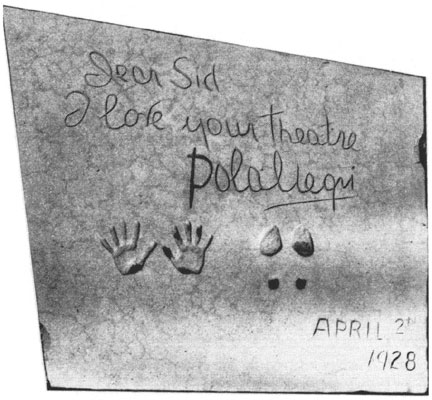 Dear Sid
I love your theatre
Pola Negri
APRIL 2ⁿᵈ
1928